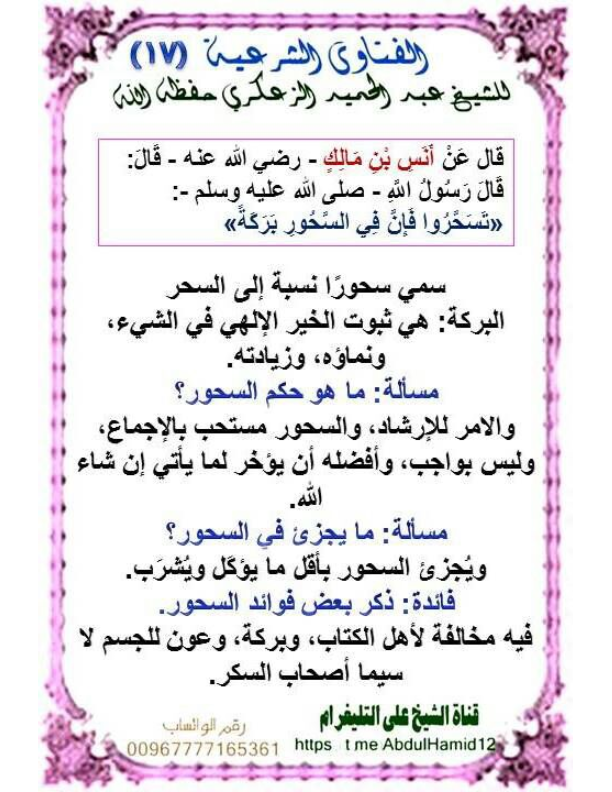 الفتاوى الشرعية (١٧)
للشيخ عبد الحميد الزعكري حفظه الله
قال عَنْ أَنَسِ بْنِ مَالِكٍ - رضي الله عنه - قَالَ:
قَالَ رَسُولُ اللَّهِ - صلى الله عليه وسلم -:
«تَسَحَّرُوا فَإِنَّ فِي السَّحُورِ بَرَكَةً»
سمي سحورًا نسبة إلى السحر
البركة: هي ثبوت الخير الإلهي في الشيء،
ونماؤه، وزيادته.
مسألة: ما هو حكم السحور؟
والامر للإرشاد، والسحور مستحب بالإجماع،
وليس بواجب، وأفضله أن يؤخر لما يأتي إن شاء
الله.
مسألة: ما يجزئ في السحور؟
ويُجزئ السحور بأقل ما يؤكَل ويُشرَب.
فائدة: ذكر بعض فوائد السحور.
فيه مخالفة لأهل الكتاب، وبركة، وعون للجسم لا
سيما أصحاب السكر.
قناة الشيخ على التليغرام
https t me AbdulHamid12
رقم الواتساب
00967777165361